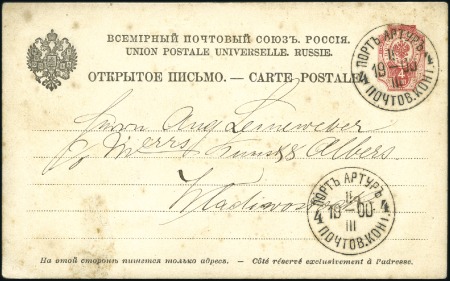 ВСЕМІРНЫЙ ПОЧТОВЫЙ СОЮЗЪ. РОССІЯ.
UNION POSTALE UNIVERSELLE. RUSSIE.
ОТКРЫТОЕ ПИСЬМО. — CARTE POSTALE.
ПОРТЪ АРТУРЪ
4 19 00
III
ПОЧТОВ. КОНТ.
Herrn Aug.
Kunst & Albers.
Wladiwostok
ПОРТЪ АРТУРЪ
4 19 00 4
III
ПОЧТОВ. КОНТ.
На этой сторонѣ пишется только адресъ. — Côté réservé exclusivement à l'adresse.